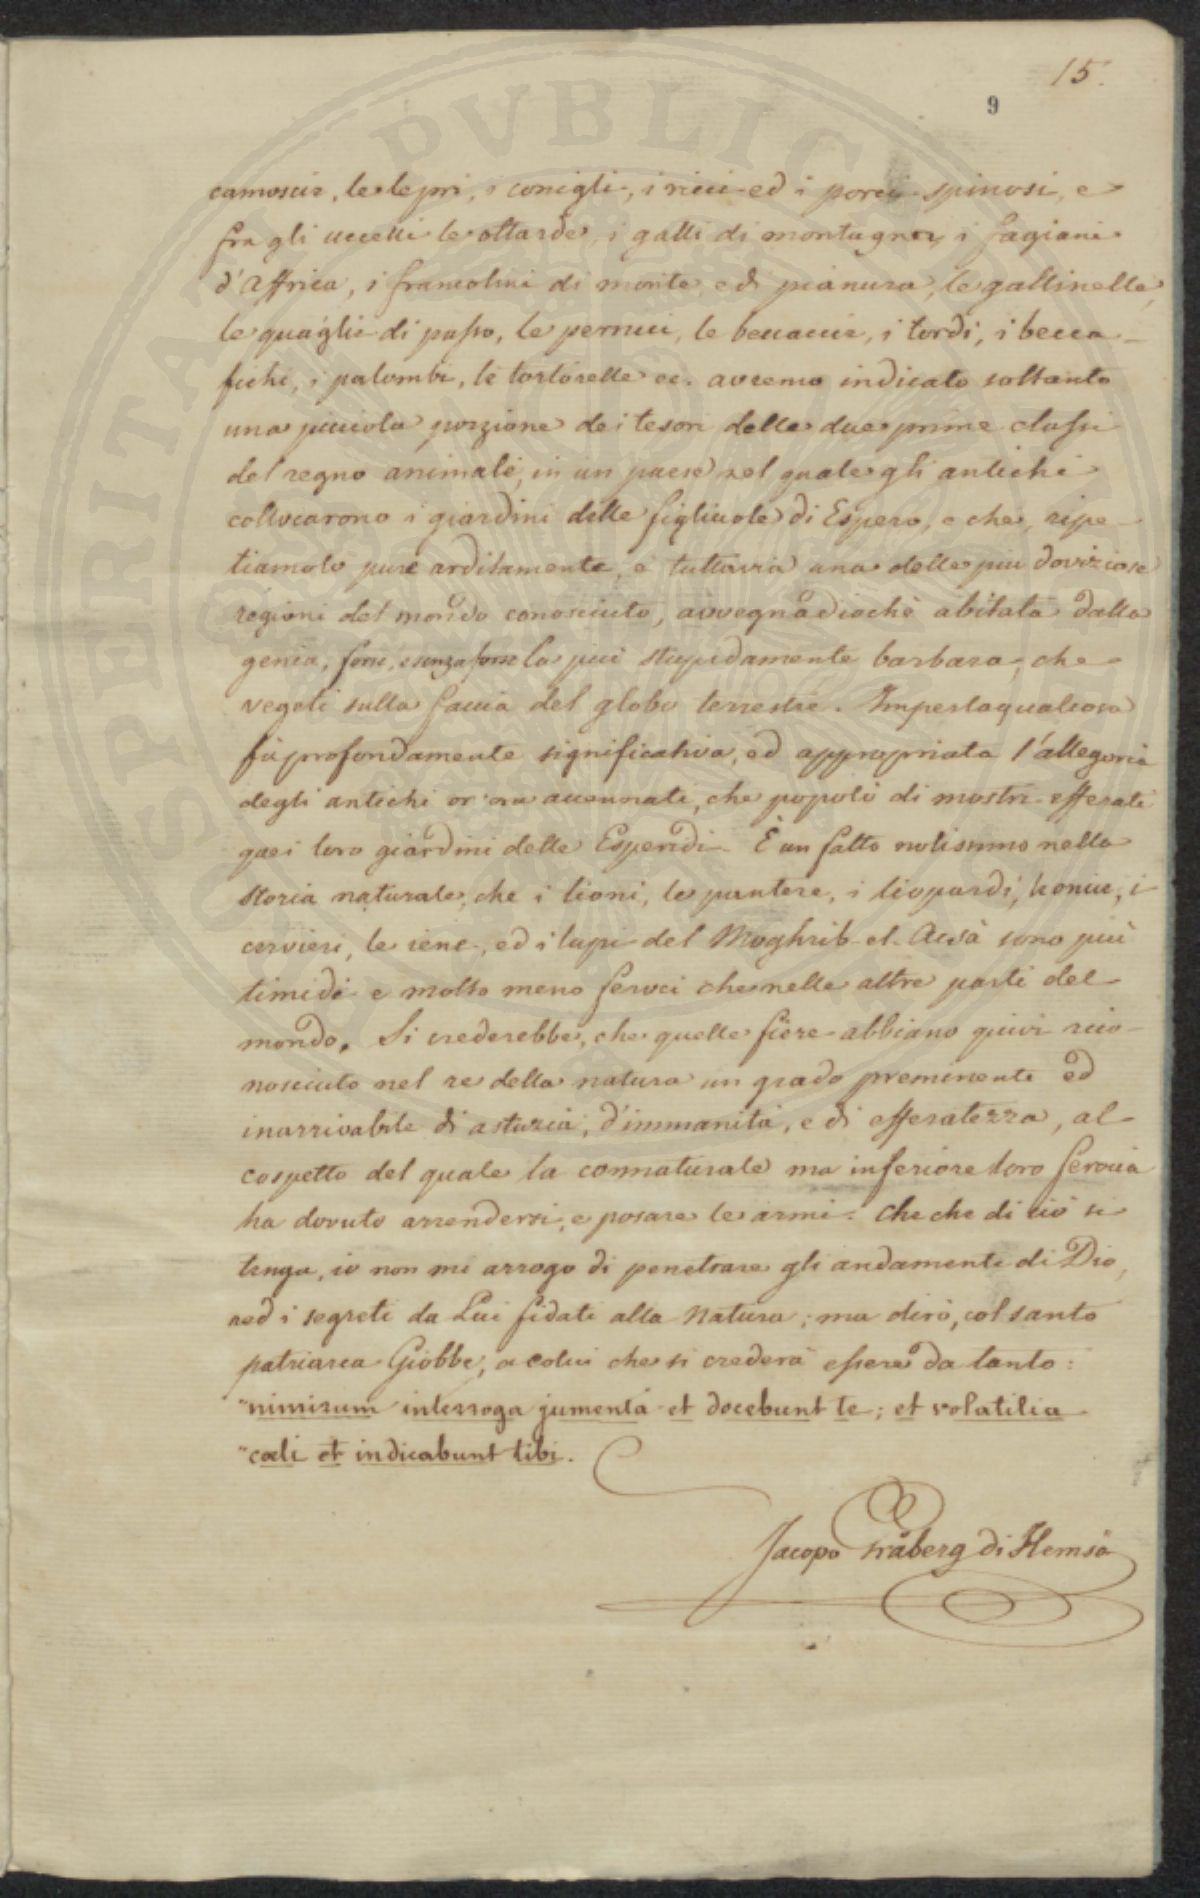 15.
9
camoscie, le lepri, i conigli, i ricci ed i porci-spinosi, e
fra gli uccelli le ottarde, i galli di montagna, i fagiani
d'Affrica, i francolini di monte, e di pianura, le gallinelle,
le quaglie di passo, le pernici, le beccaccie, i tordi, i becca-
fichi, i palombi, le tortorelle ec. avremo indicato soltanto
una picciola porzione dei tesori delle due prime classi
del regno animale, in un paese nel quale gli antichi
collocarono i giardini delle figliuole di Espero, e che, ripe-
tiamolo pure arditamente, è tuttavia una delle più doviziose
regioni del mondo conosciuto, avvegnadiochè abitata dalla
genia, forse, e senza forse la più stupidamente barbara, che
vegeti sulla faccia del globo terrestre. Impertaqualcosa
fù profondamente significativa, ed appropriata l'allegoria
degli antichi or'ora accennati, che popolò di mostri efferati
quei loro giardini delle Esperidi. È un fatto notissimo nella
storia naturale, che i lioni, le pantere, i liopardi, le oncie, i
cervieri, le iene, ed i lupi del Moghrib-el-Acsà sono più
timidi e molto meno feroci che nelle altre parti del
mondo. Si crederebbe, che quelle fiere abbiano quivi rico-
nosciuto nel re della natura un grado preminente ed
inarrivabile di astuzia, d'immanità, e di efferatezza, al
cospetto del quale la connaturale ma inferiore loro ferocia
ha dovuto arrendersi, e posare le armi. Che che di ciò si
tenga, io non mi arrogo di penetrare gli andamenti di Dio,
ned i segreti da Lui fidati alla Natura; ma dirò, col santo
patriarca Giobbe, a colui che si crederà essere da tanto:
"nimirum interroga jumenta et docebunt te; et volatilia
"cœli et indicabunt tibi.
Jacopo Gråberg di Hemsö
PROSPERITATI PVBLICAE